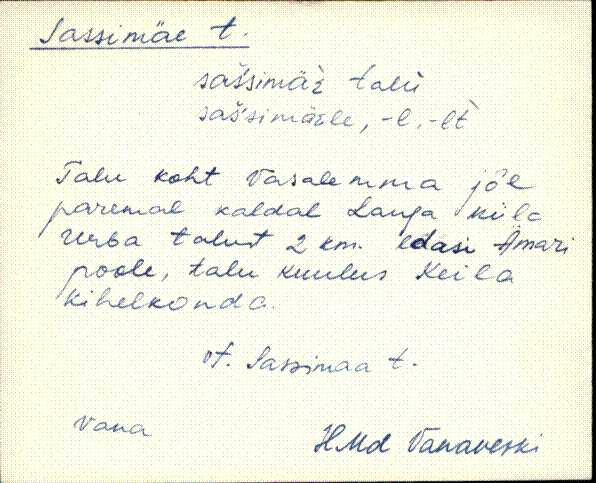 Sassimäe t.
sašsimäε talu
sašsimäεle, -l, -lt
Talu koht Vasalemma jõe
paremal kaldal Lauga küla
Urba talust 2 km. edasi Ämari
poole, talu kuulus Keila
kihelkonda.
vt. Sassimaa t.
vana
HMd Vanaveski